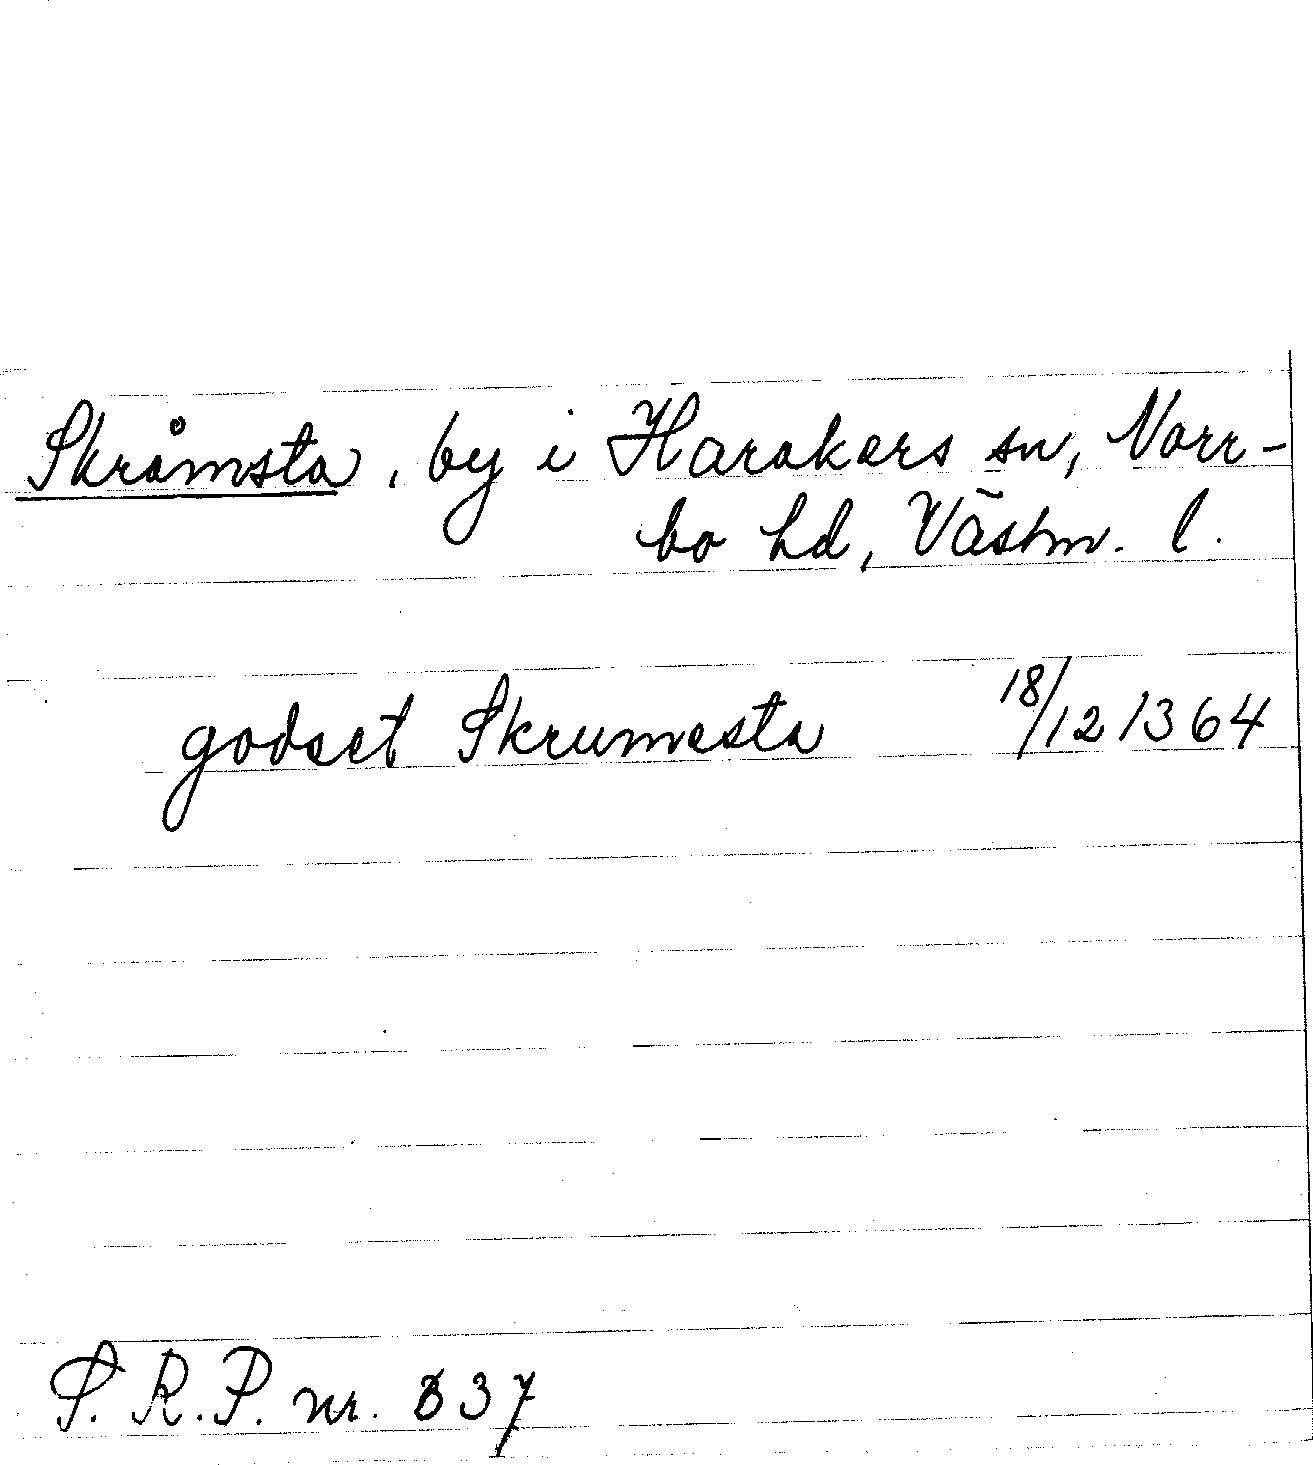 Skråmsta, by i Harakers sn, Norr-
bo hd, Västm. l.
godset Skrumesta 18/12 1364
S.R.P. nr. 637